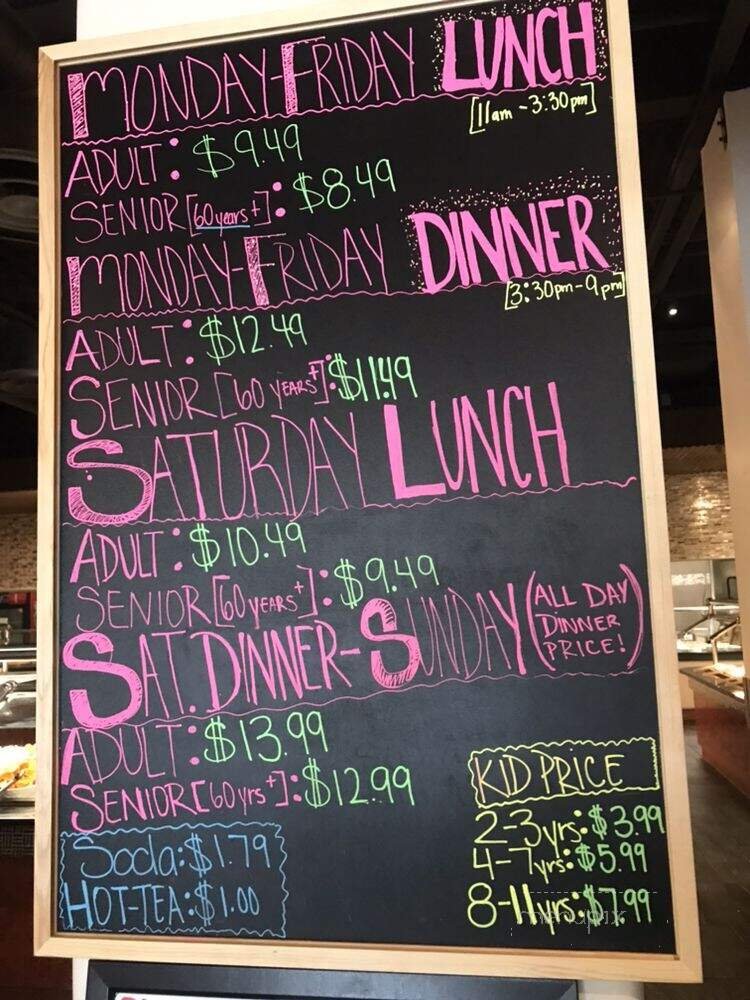 MONDAY-FRIDAY LUNCH
[11am - 3:30pm]
ADULT: $9.49
SENIOR [60 years+]: $8.49
MONDAY-FRIDAY DINNER
[3:30pm-9pm]
ADULT: $12.49
SENIOR [60 YEARS+]: $11.49
SATURDAY LUNCH
ADULT: $10.49
SENIOR [60 YEARS+]: $9.49
SAT. DINNER-SUNDAY (ALL DAY DINNER PRICE!)
ADULT: $13.99
SENIOR [60yrs+]: $12.99
KID PRICE
2-3yrs: $3.99
4-7yrs: $5.99
8-11yrs: $7.99
Soda: $1.79
HOT-TEA: $1.00
menupix